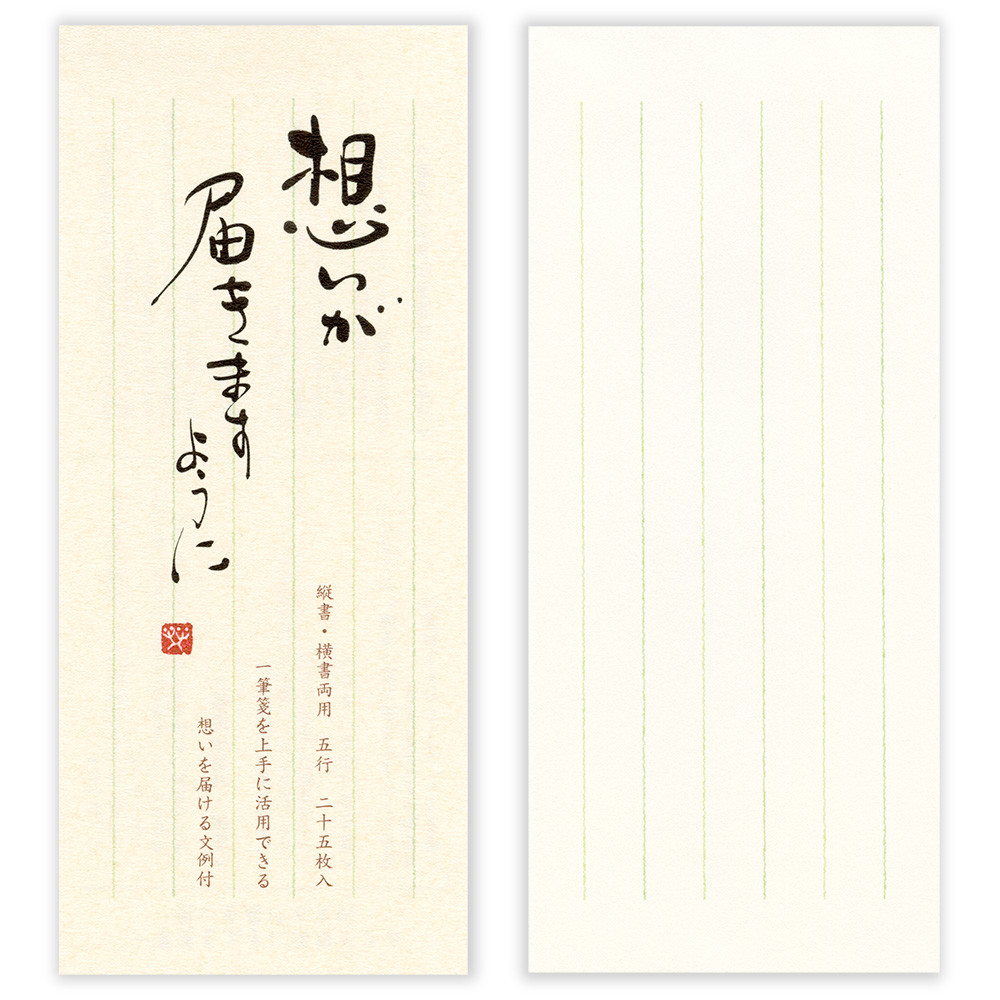 想いが
届きます
ように
縦書・横書両用　五行　二十五枚入
一筆箋を上手に活用できる
想いを届ける文例付